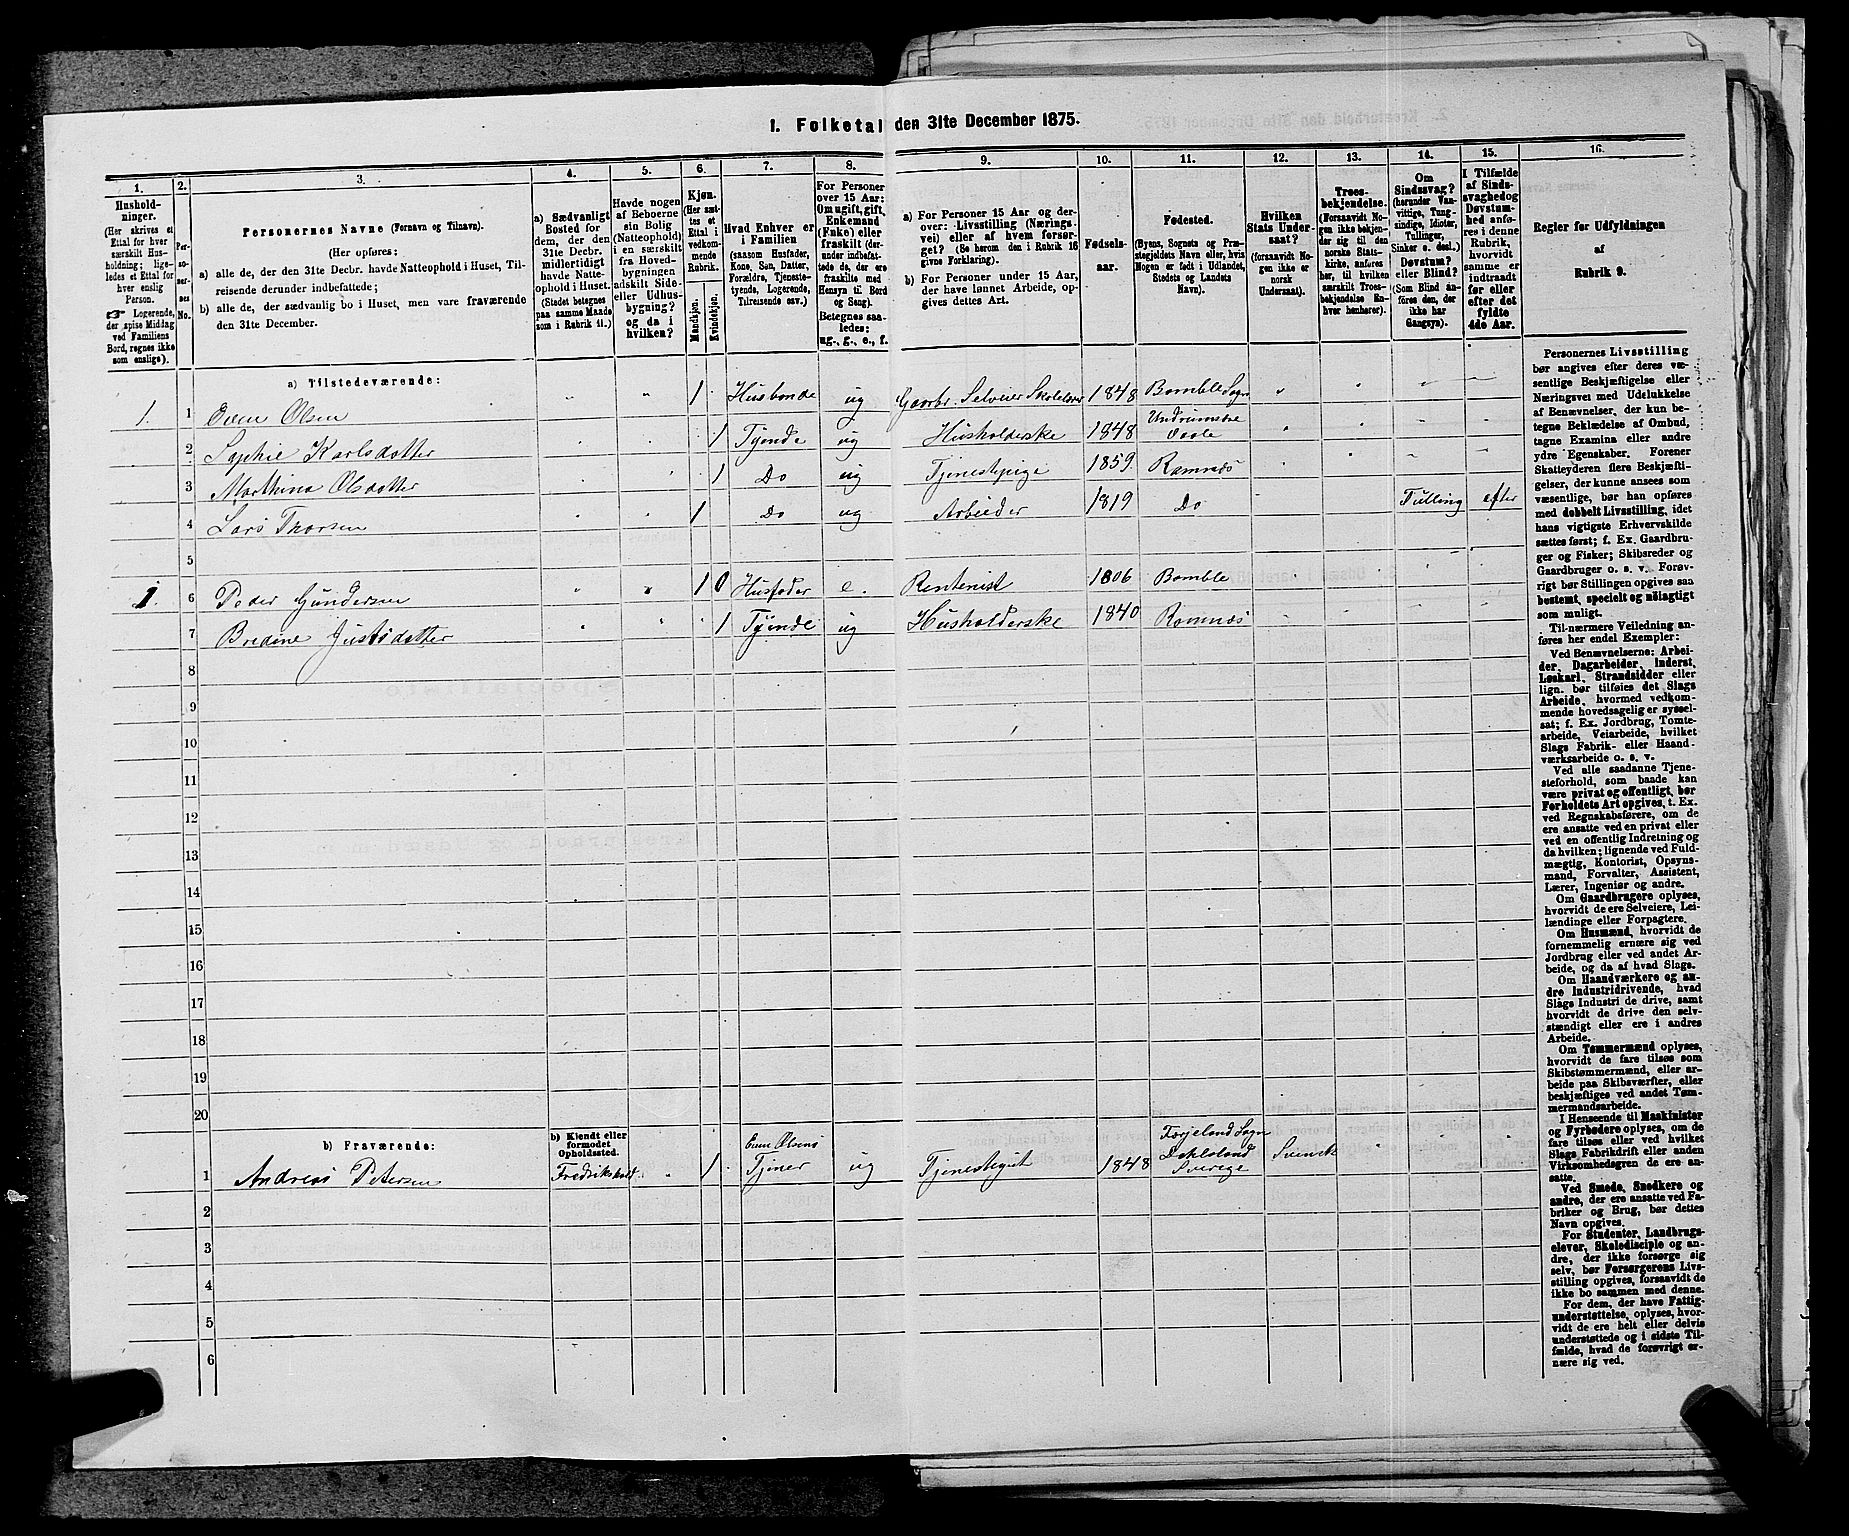 1. Folketal den 31te December 1875.
1. 2. 3. 4. 5. 6. 7. 8. 9. 10. 11. 12. 13. 14. 15. 16.
Hushold-
ninger.
(Her skrives et
Ettal for hver
særskilt Hus-
holdning; lige-
ledes et Ettal for
hver enslig
Person.
☞ Logerende,
der spise Middag
ved Familiens
Bord, regnes ikke
som enslige).
Per-
so-
ner-
ses
No.
Personernes Navne (Fornavn og Tilnavn).
(Her opføres:
a) alle de, der den 31te Decbr. havde Natteophold i Huset, Til-
reisende derunder indbefattede;
b) alle de, der sædvanlig bo i Huset, men vare fraværende
den 31te December.
a) Sædvanligt
Bosted for
dem, der den
31te Decbr.
midlertidigt
havde Natte-
ophold i Huset.
(Stedet betegnes
paa samme Maade
som i Rubrik 11.)
Havde nogen
af Beboerne
sin Bolig
(Natteophold)
i en særskilt
fra Hoved-
bygningen
adskilt Side-
eller Udhus-
bygning?
og da i
hvilken?
Kjøn.
(Her sæt-
tes et
Ettal i
vedkom-
mende
Rubrik.
Mandkjøn.
Kvindekjøn.
Hvad Enhver er
i Familien
(saasom Husfader,
Kone, Søn, Datter,
Forældre, Tjeneste-
tyende, Logerende,
Tilreisende osv.)
For Personer
over 15 Aar:
Om ugift, gift,
Enkemand
(Enke) eller
fraskilt (der-
under indbefat-
tede de, der ere
fraskilte med
Hensyn til Bord
og Seng).
Betegnes saa-
ledes:
ug., g., e., f.
a) For Personer 15 Aar og der-
over: Livsstilling (Nærings-
vei) eller af hvem forsør-
get? (Se herom den i Rubrik 16
givne Forklaring).
b) For Personer under 15 Aar,
der have lønnet Arbeide, op-
gives dettes Art.
Fødsels-
aar.
Fødested.
(Byens, Sognets og Præ-
stegjeldets Navn eller, hvis
Nogen er født i Udlandet,
Stedets og Landets
Navn).
Hvilken
Stats Under-
saat?
(forsaavidt No-
gen ikke er
norsk
Undersaat).
Troes-
bekjendelse.
(Forsaavidt No-
gen ikke bekjen-
der sig til den
norske Stats-
kirke, anføres
her, til hvilken
særskilt Troes-
bekjendelse En-
hver henhører).
Om
Sindssvag?
(herunder Van-
vittige, Tung-
sindige, Idioter,
Tullinger,
Sinker o. desl.)
Døvstum?
eller Blind?
(Som Blind an-
føres den, der
ikke har
Gangsyn).
I Tilfælde
af Sinds-
svaghed og
Døvstum-
hed anfø-
res i denne
Rubrik,
hvorvidt
samme er
indtraadt
før eller
efter det
fyldte
4de Aar.
Regler for Udfyldningen
af
Rubrik 9.
a) Tilstedeværende:
1. 1 Even Olsen " " 1 Husbonde ug Gaardbr. Selveier Skolelærer 1848 Bamble Sogn " " " "
2 Sophie Karlsdatter 1 Tjende ug Husholderske 1848 Undrumdre
3 Marthine Olsdatter 1 Do ug Tjenestepige 1859. Ramnæs
4 Lars Thorsen 1 Do ug Arbeider 1819 Do Tulling efter
5
1. 6 Peder Gundersen 1 0 Husfader e. Rentenist 1806 Bamble
7 Bredine Justsdatter 1 Tjende ug Husholderske 1840 Ramnæs
8
9
10
11
12
13
14
15
16
17
18
19
20
b) Fraværende:
b) Kjendt eller
formodet
Opholdssted.
1 Andreas Petersen Fredrikshald " 1 Even Olsens
Tjener ug Tjenestegut 1848 Sogn
Dahlsland
Sverige Svensk
2
3
4
5
6
Personernes Livsstilling
bør angives efter deres væ-
sentlige Beskjæftigelse eller
Næringsvei med Udelukkelse
af Benævnelser, der kun be-
tegne Beklædelse af Ombud,
tagne Examina eller andre
ydre Egenskaber. Forener
Skatteyderen flere Beskjæfti-
gelser, der kunne ansees som
væsentlige, bør han opføres
med dobbelt Livsstilling, idet
hans vigtigste Erhvervskilde
sættes først; f. Ex. Gaardbru-
ger og Fisker; Skibsreder og
Gaardbruger o. s. v. Forøv-
rigt bør Stillingen opgives saa
bestemt, specielt og nöiagtigt
som muligt.
Til nærmere Veiledning an-
føres her endel Exempler:
Ved Benævnelserne: Arbei-
der, Dagarbeider, Inderst,
Løskarl, Strandsidder eller
lign. bør tilføies det Slags
Arbeide, hvormed vedkom-
mende hovedsagelig er syssel-
sat; f. Ex. Jordbrug, Tomte-
arbeide, Veiarbeide, hvilket
Slags Fabrik- eller Haand-
værksarbeide o. s. v.
Ved alle saadanne Tjene-
steforhold, som baade kan
være privat og offentligt, bør
Forholdets Art opgives, t. Ex.
ved Regnskabsførere, om de
ere ansatte ved en privat eller
ved en offentlig Indretning og
da hvilken; lignende ved Fuld-
mægtig, Kontorist, Opsyns-
mand, Forvalter, Assistent,
Lærer, Ingeniør og andre.
Om Gaardbrugere oplyses,
hvorvidt de ere Selveiere, Lei-
lændinge eller Forpagtere.
Om Husmænd, hvorvidt de
fornemmelig ernære sig ved
Jordbrug eller ved andet Ar-
beide, og da af hvad Slags.
Om Haandværkere og an-
dre Industridrivende, hvad
Slags Industri de drive, samt
hvorvidt de drive den selv-
stændigt eller ere i andres
Arbeide.
Om Tømmermænd oplyses,
hvorvidt de fare tilsøs som
Skibstømmermænd, eller ar-
beide paa Skibsværfter, eller
beskjæftiges ved andet Tøm-
mermandsarbeide.
I Henseende til Maskinister
og Fyrbødere oplyses, om de
fare tilsøs eller ved hvilket
Slags Fabrikdrift eller anden
Virksomhedsgren de ere an-
satte.
Ved Smede, Snedkere og
andre, der ere ansatte ved Fa-
briker og Brug, bør dettes
Navn opgives.
For Studenter, Landbrugs-
elever, Skoledisciple og an-
dre, der ikke forsørge sig
selv, bør Forsørgerens Livs-
stilling opgives, forsaavidt de
ikke bo sammen med denne.
For dem, der have Fattig-
understøttelse, oplyses, hvor-
vidt de ere helt eller delvis
understøttede og i sidste Til-
fælde, hvad de forøvrigt er-
nære sig ved.